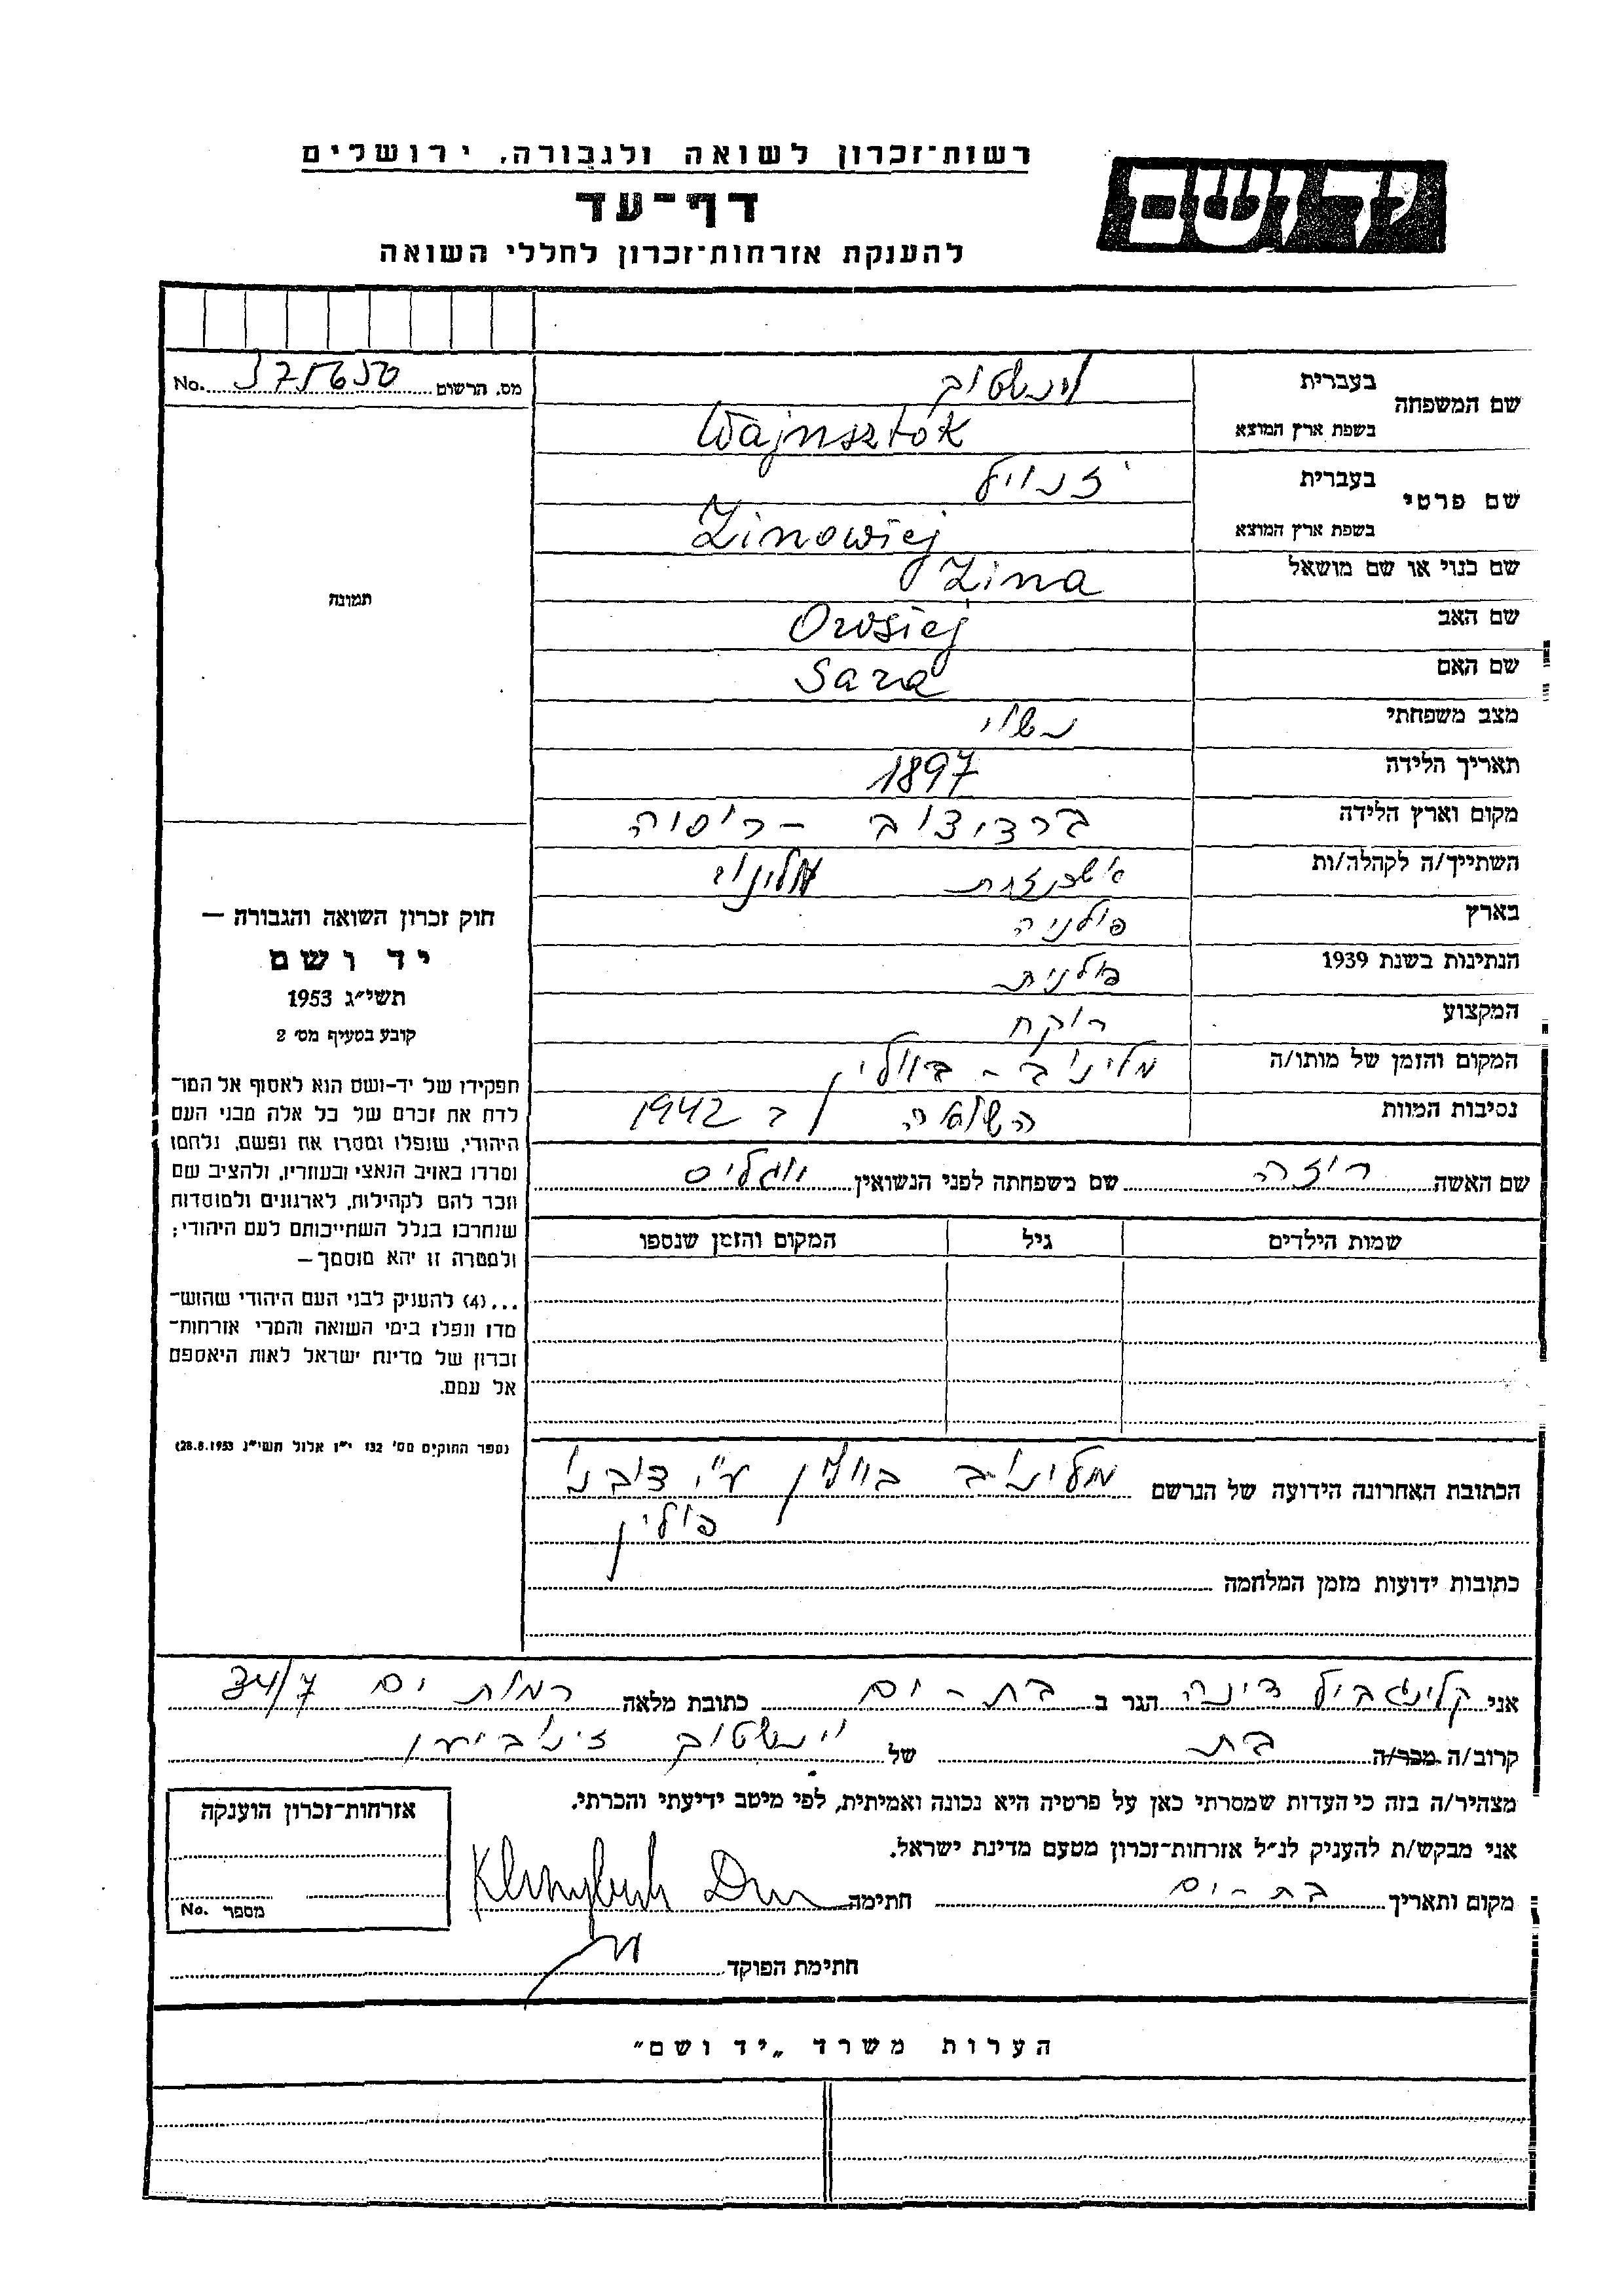 רשות־זכרון לשואה ולגבורה, ירושלים
יד ושם
דף־עד
להענקת אזרחות־זכרון לחללי השואה
מס. הרשום No.
שם המשפחה
בעברית וינשטוק
בשפת ארץ המוצא Wajnsztok
שם פרטי
בעברית
בשפת ארץ המוצא Zinowiej
שם כנוי או שם מושאל Zina
שם האב Owsiej
שם האם Sara
מצב משפחתי נשוי
תאריך הלידה 1897
מקום וארץ הלידה ברדיצוב - רוסיה
השתייך/ה לקהלה/ות אשכנזית
בארץ פולניה
הנתינות בשנת 1939 פולנית
המקצוע רוקח
המקום והזמן של מותו/ה מלינוב - בוולין
נסיבות המוות השואה ב 1942
שם האשה רוזה שם משפחתה לפני הנשואין
שמות הילדים גיל המקום והזמן שנספו
הכתובת האחרונה הידועה של הנרשם מלינוב בוולין ע"י דובנו
פולין
כתובות ידועות מזמן המלחמה
תמונה
חוק זכרון השואה והגבורה —
יד ושם
תשי״ג 1953
קובע בסעיף מס׳ 2
תפקידו של יד-ושם הוא לאסוף אל המו־
לדת את זכרם של כל אלה מבני העם
היהודי, שנפלו ומסרו את נפשם, נלחמו
ומרדו באויב הנאצי ובעוזריו, ולהציב שם
וזכר להם לקהילות, לארגונים ולמוסדות
שנחרבו בגלל השתייכותם לעם היהודי;
ולמטרה זו יהא מוסמך —
...(4) להעניק לבני העם היהודי שהוש־
מדו ונפלו בימי השואה והמרי אזרחות־
זכרון של מדינת ישראל לאות היאספם
אל עמם.
(ספר החוקים מס׳ 132 י״ז אלול תשי״ג 28.8.1953)
אני קלינגביל דינה הגר ב בת - ים כתובת מלאה רמת ים 34/7
קרוב/ה מכר/ה בת של וינשטוק
מצהיר/ה בזה כי העדות שמסרתי כאן על פרטיה היא נכונה ואמיתית, לפי מיטב ידיעתי והכרתי.
אני מבקש/ת להעניק לנ״ל אזרחות־זכרון מטעם מדינת ישראל.
מקום ותאריך בת - ים חתימה
חתימת הפוקד
אזרחות־זכרון הוענקה
מספר No.
הערות משרד „יד ושם״